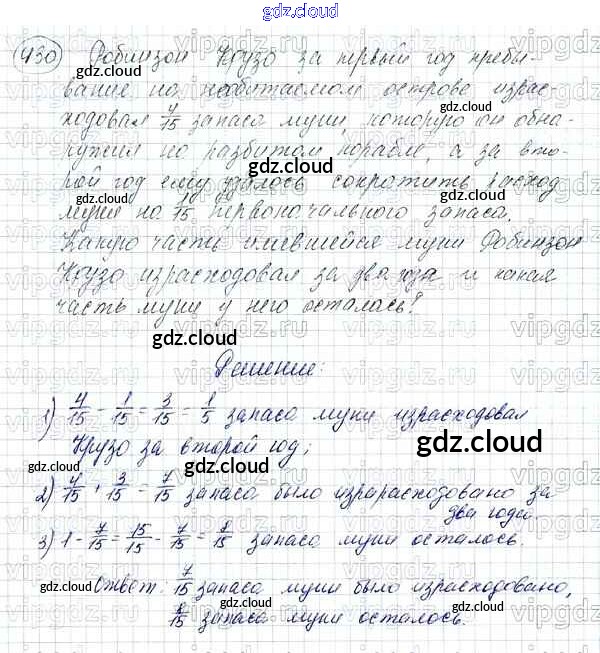 gdz.cloud
430 Робинзон Крузо за первый год пребы-
вание на необитаемом острове израс-
ходовал 4/15 запаса муки, которую он обна-
ружил на разбитом корабле, а за вто-
рой год ему удалось сократить расход
муки на 1/15 первоначального запаса.
Какую часть имевшейся муки Робинзон
Крузо израсходовал за два года и какая
часть муки у него осталась?
Решение:
1) 4/15 - 1/15 = 3/15 = 1/5 запаса муки израсходовал
Крузо за второй год;
2) 4/15 + 3/15 = 7/15 запаса было израрасходовано за
два года.
3) 1 - 7/15 = 15/15 - 7/15 = 8/15 запаса муки осталось.
Ответ: 7/15 запаса муки было израсходовано,
8/15 запаса муки осталось.